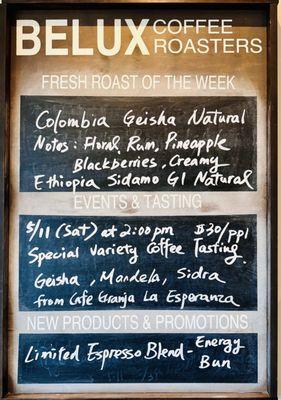 BELUX COFFEE
ROASTERS
FRESH ROAST OF THE WEEK
Colombia Geisha Natural
Notes: Floral, Rum, Pineapple
Blackberries, Creamy
Ethiopia Sidamo G1 Natural
EVENTS & TASTING
5/11 (Sat) at 2:00pm $30/ppl
Special Variety Coffee Tasting.
Geisha, Mandela, Sidra
from Cafe Granja La Esperanza
NEW PRODUCTS & PROMOTIONS
Limited Espresso Blend - Energy
Bun